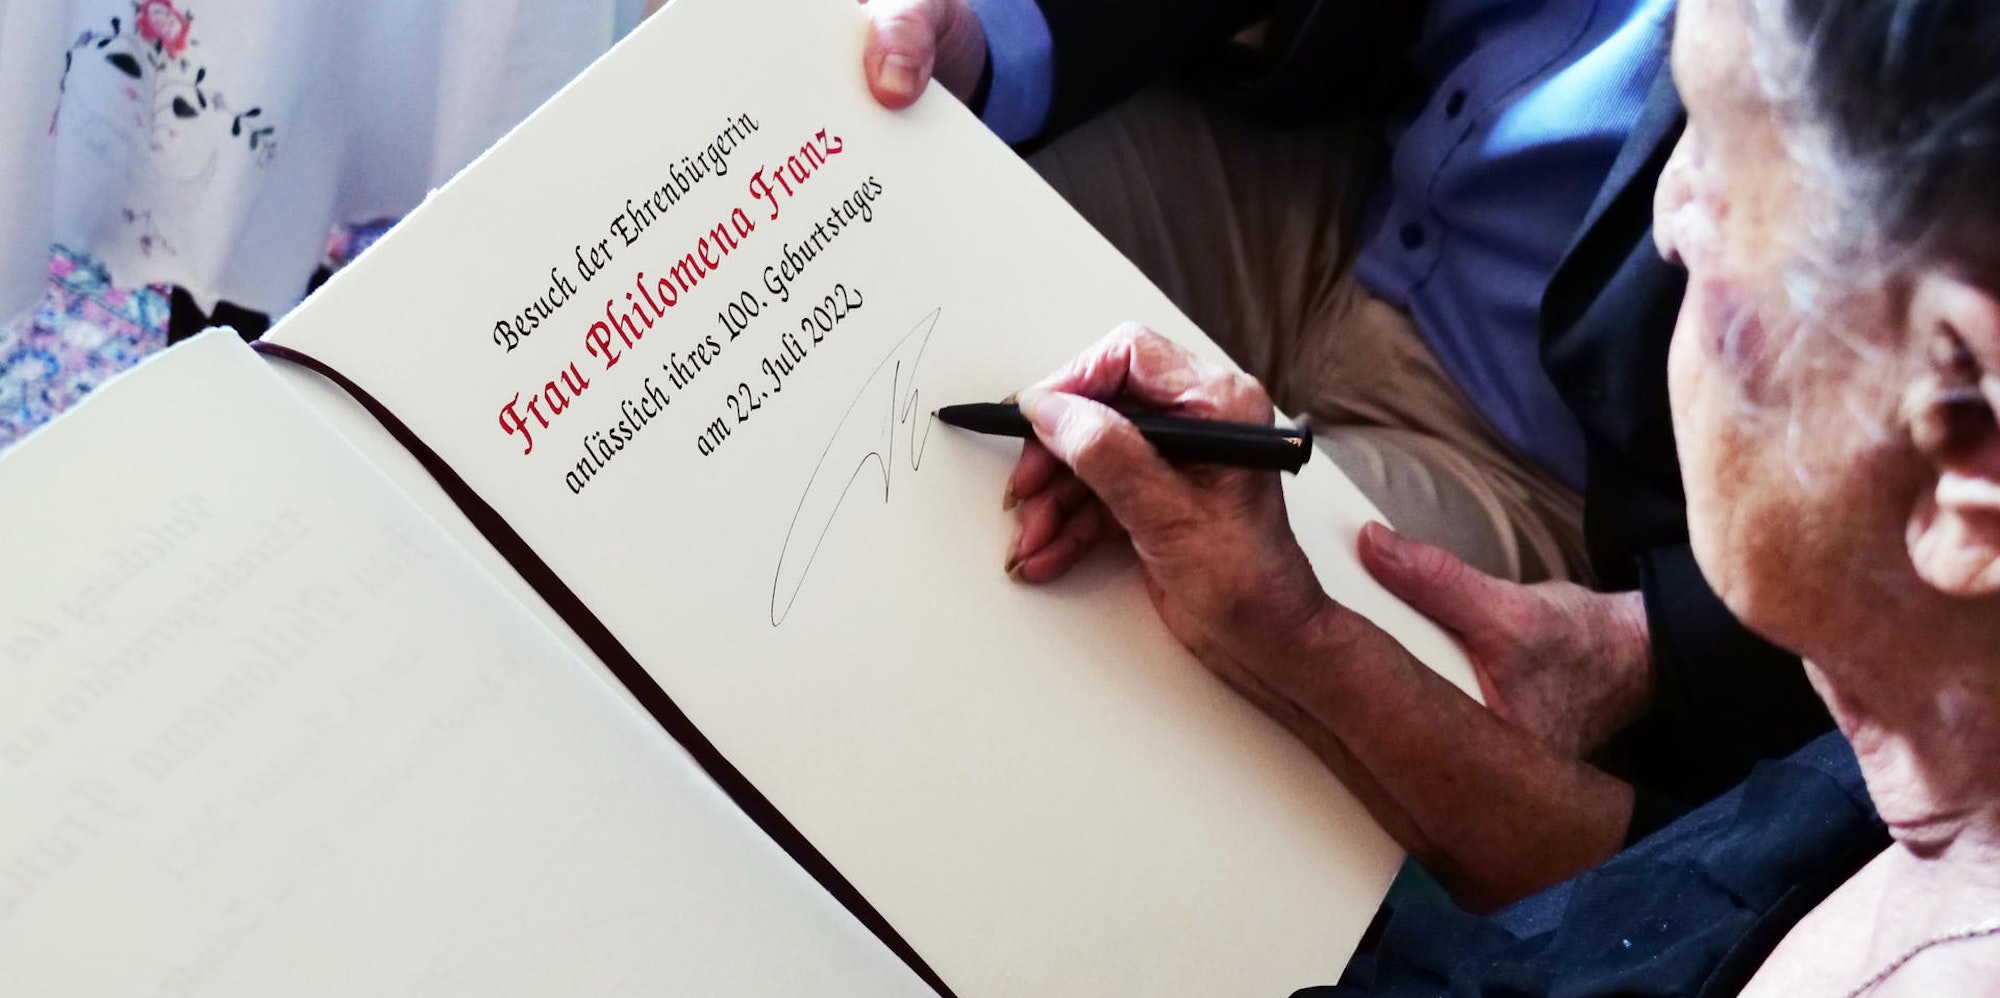 Besuch der Ehrenbürgerin
Frau Philomena Franz
anlässlich ihres 100. Geburtstages
am 22. Juli 2022